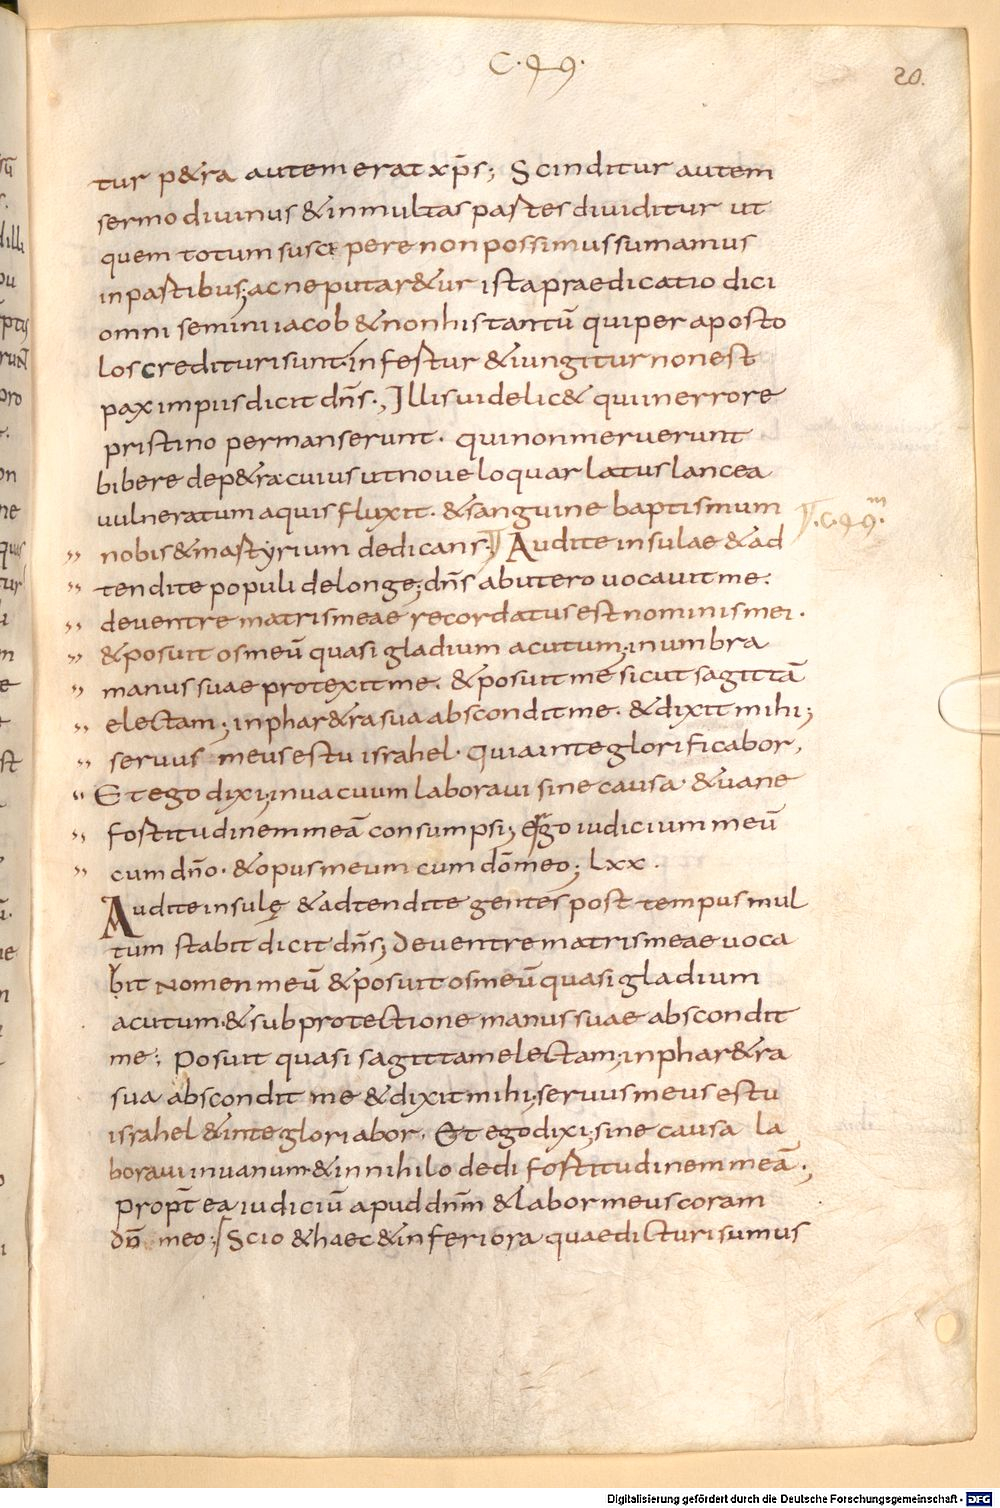 C. 49.
20.
tur p&ra autem erat xp̄s; Scinditur autem
sermo diuinus & in multas partes diuiditur ut
quem totum suscipere non possimus sumamus
in partibus; ac ne putar&ur ista praedicatio dici
omni semini iacob & non his tantū qui per aposto
los credituri sunt. infertur & iungitur non est
pax impiis dicit dn̄s., Illis uidelic& qui in errore
pristino permanserunt. qui non meruerunt
bibere de p&ra cuius ut noue loquar latus lancea
uulneratum aquis fluxit. & sanguine baptismum
¶.C.49.m
nobis & martyrium dedicans. ¶ Audite insulae & ad
tendite populi de longe; dn̄s ab utero uocauit me.
de uentre matris meae recordatus est nominis mei.
& posuit os meū quasi gladium acutum; in umbra
manus suae protexit me. & posuit me sicut sagittā
electam; in phar&ra sua abscondit me. & dixit mihi;
seruus meus es tu israhel. quia in te glorificabor,
Et ego dixi; in uacuum laboraui sine causa. & uane
fortitudinem meā consumpsi; ergo iudicium meū
cum dn̄o. & opus meum cum dō meo; lxx.
Audite insulę & adtendite gentes post tempus mul
tum stabit dicit dn̄s; de uentre matris meae uoca
bit nomen meū & posuit os meū quasi gladium
acutum. & sub protectione manus suae abscondit
me; posuit quasi sagittam electam; in phar&ra
sua abscondit me & dixit mihi; seruus meus es tu
israhel & in te gloriabor. Et ego dixi; sine causa la
boraui in uanum & in nihilo dedi fortitudinem meā.;
propt̄ ea iudiciū apud dn̄m & labor meus coram
dn̄ meo; Scio & haec & inferiora quae dicturi sumus
Digitalisierung gefördert durch die Deutsche Forschungsgemeinschaft - DFG